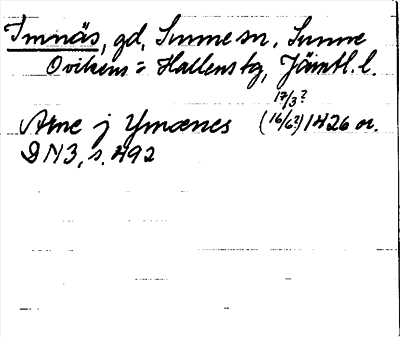 Imnäs, gd, Sunne sn, Sunne
Ovikens = Hallens tg, Jämtl. l.
17/3?
Arne j Ymænes (16/6?) 1426 or.
DN3, s. 492